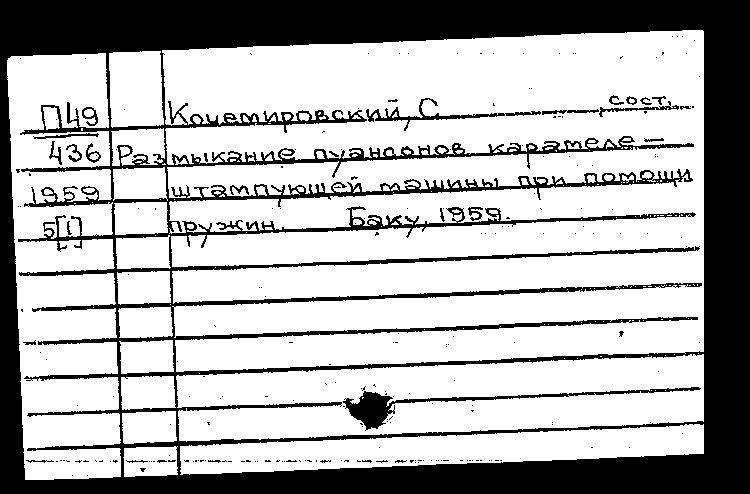 П49 Коцемировский, С сост.
436 Размыкание пуансонов карамеле-
1959 штампующей машины при помощи
5[1] пружин. Баку, 1959.